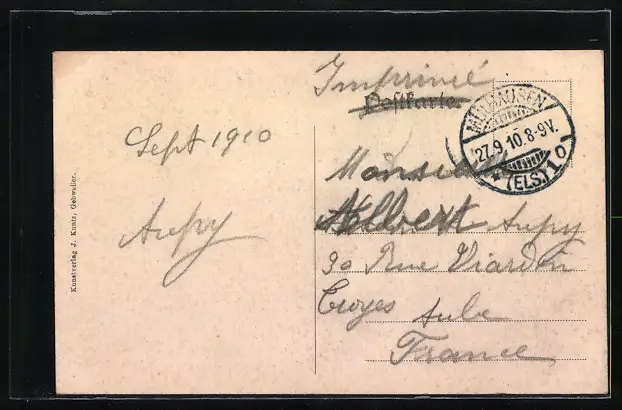 Sept 1910
Aupy
Kunstverlag J. Kuntz, Gebweiler.
Imprimé
Postkarte.
MÜLHAUSEN
27.9.10.8-9V.
* (ELS.) 1 o
Monsieur
Albert Aupy
30 Rue Viardin
Troyes Aube
France